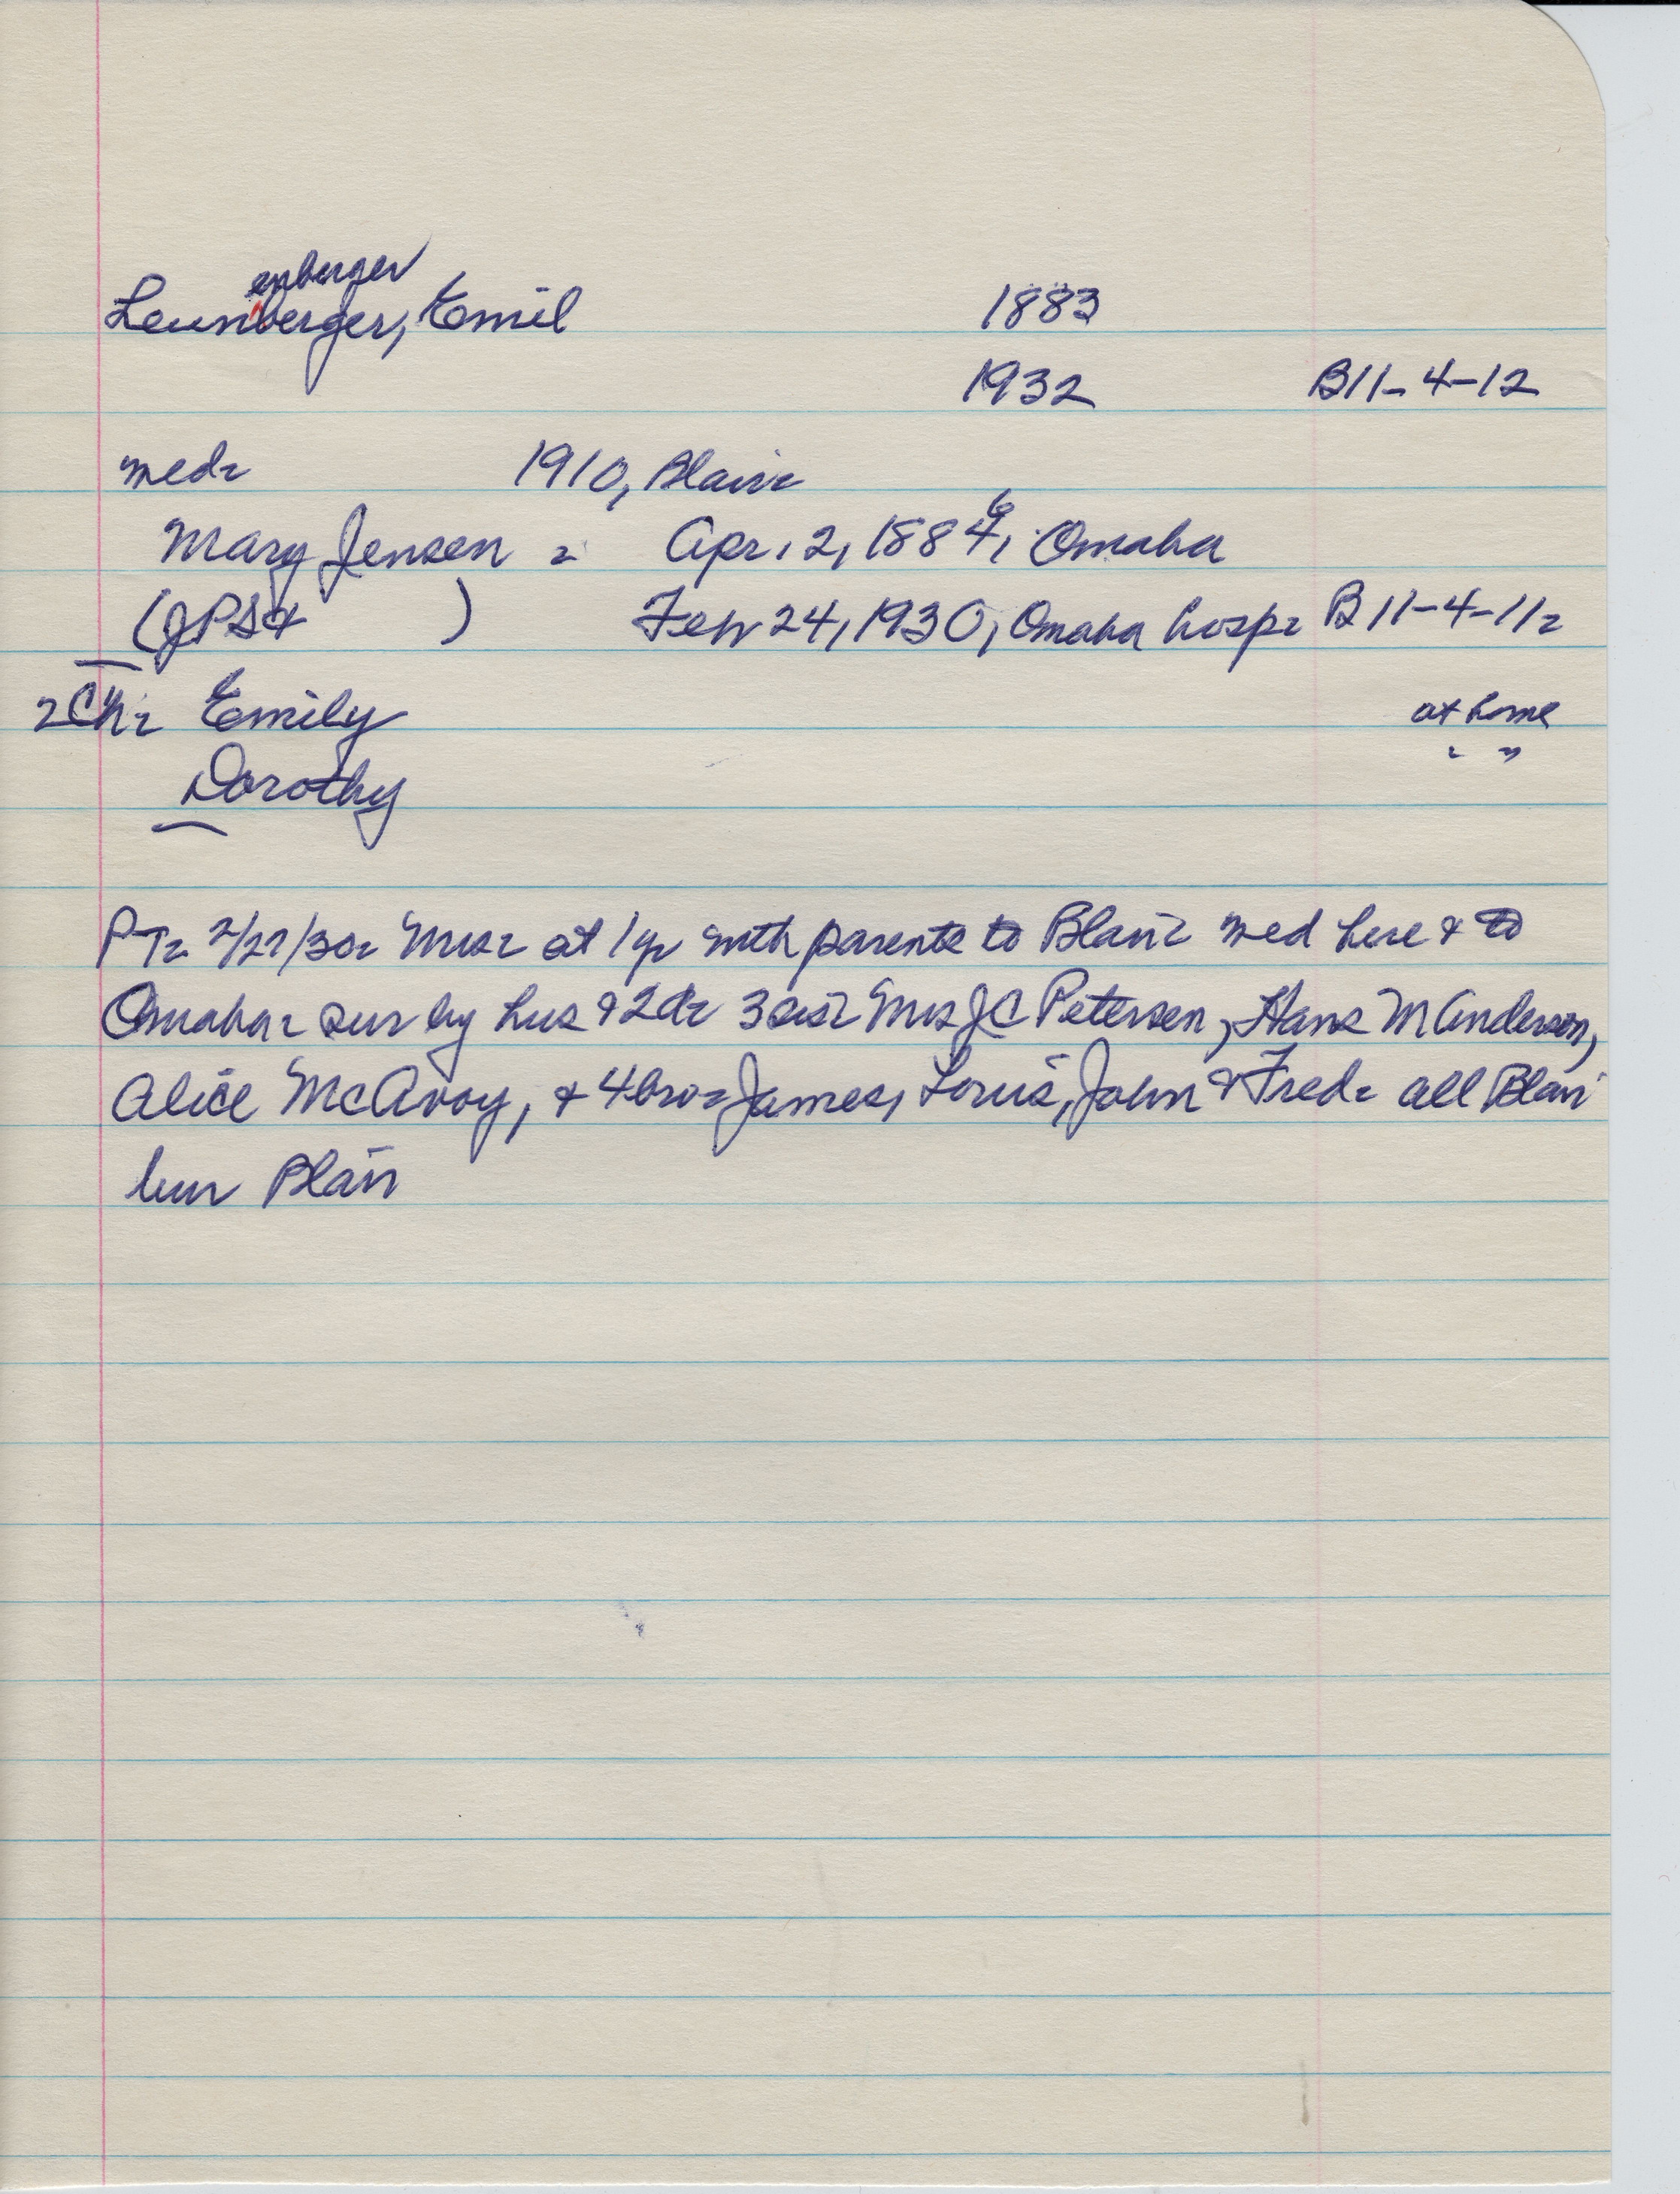 enberger
Leunberger, Emil 1883
1932 B11-4-12
med- 1910, Blair-
Mary Jensen - Apr. 2, 1884, 6 Omaha
(JPS& ) Feb 24, 1930, Omaha hosp- B 11-4-11-
2Ch- Emily at home
Dorothy " "
PT- 2/27/30- Mrs- at 1 yr with parents to Blair- med here & to
Omaha- sur by hus & 2d- 3 sis- Mrs JC Petersen, Hans M Anderson,
Alice McAvoy, & 4 bro- James, Louis, John & Fred- all Blair
bur Blair